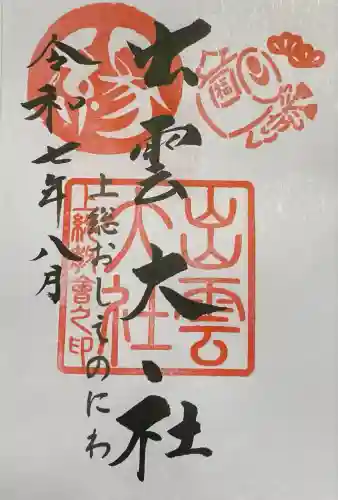 出雲大社
上総おしえのにわ
令和七年八月
縁
福
出雲
大社
上総教會之印